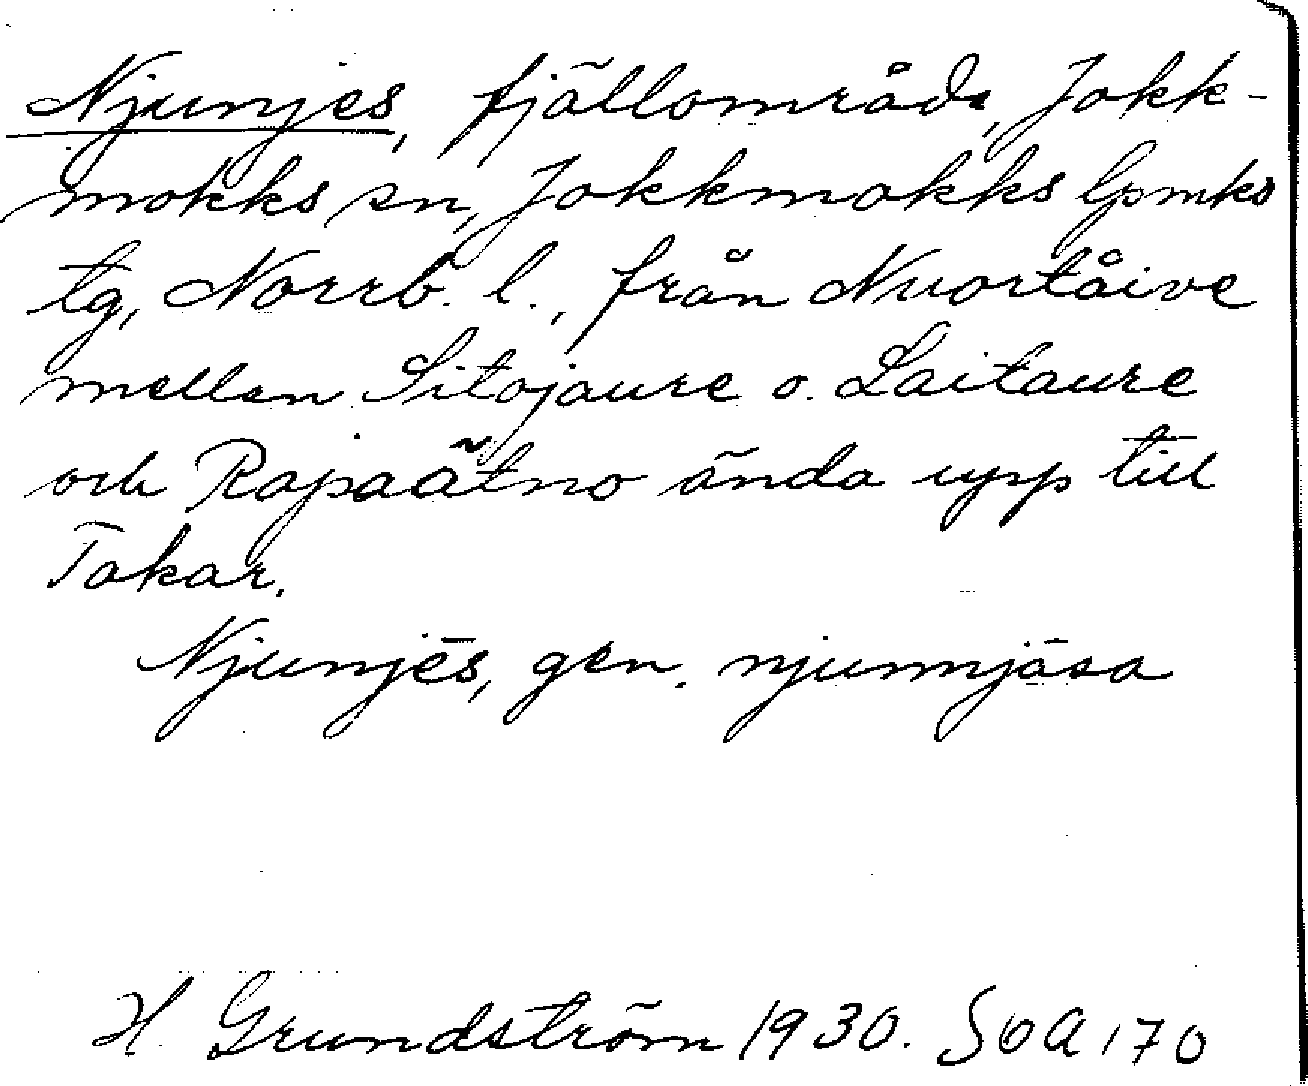 Njunjes, fjällområde, Jokk-
mokks sn, Jokkmokks lpmks
tg, Norrb. l., från Nuortåive
mellan Sitojaure o. Laitaure
och Rapaätno ända upp till
Takar.
Njunjēs, gen. njunnjāsa
H Grundström 1930. SOA 170